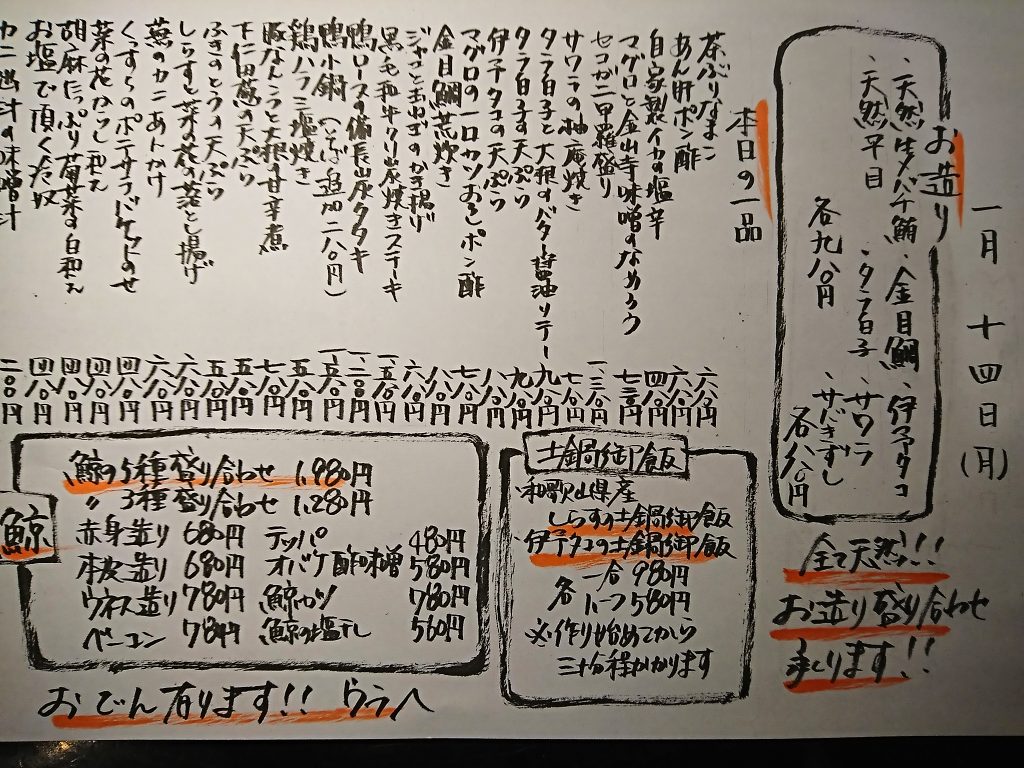 一月 十四日(月)
お造り
・天然生バチ鮪 ・金目鯛 ・伊予タコ
・天然平目 ・タラ白子 ・サワラ
・サバきずし
各九八〇円
各八八〇円
全て天然!!
お造り盛り合わせ
承ります!!
本日の一品
茶ぶりなまこ 六八〇円
あん肝ポン酢 六八〇円
自家製イカの塩辛 四八〇円
マグロと金山寺味噌のなめろう 七三〇円
セコガニ甲羅盛り 一、三八〇円
サワラの柚庵焼き 七八〇円
タラ白子と大根のバター醤油ソテー 九八〇円
タラ白子の天ぷら 九八〇円
伊予タコの天ぷら 八八〇円
マグロの一口カツおろしポン酢 七八〇円
金目鯛荒炊き 八八〇円
ジャコとねぎのかき揚げ 六八〇円
黒毛和牛クリ炭焼きステーキ 一、五八〇円
鴨ロースの備長炭タタキ 一、二〇〇円
鴨小鍋(そば追加二八〇円) 一、五八〇円
鶏ハラミ塩焼き 五八〇円
豚なんこつと大根の甘辛煮 七八〇円
下仁田葱の天ぷら 五八〇円
ふきのとうの天ぷら 五八〇円
しらすと菜の花の落とし揚げ 六八〇円
蕪のカニあんかけ 六八〇円
くっすらのポテサラバゲットのせ 四八〇円
菜の花からし和え 四八〇円
胡麻たっぷり菊菜の白和え 四八〇円
お塩で頂くだ奴 四八〇円
カニ出汁の味噌汁 二〇〇円
土鍋御飯
・和歌山県産
しらすの土鍋御飯
・伊予タコの土鍋御飯
各 一合 980円
ハーフ 580円
※作り始めてから
三十分程かかります
鯨
鯨の5種盛り合わせ 1,980円
〃 3種盛り合わせ 1,280円
赤身造り 680円 テッパ 480円
本皮造り 680円 オバケ酢味噌 580円
ウネス造り 780円 鯨カツ 780円
ベーコン 784円 鯨の塩干し 560円
おでん有ります!! ウラへ